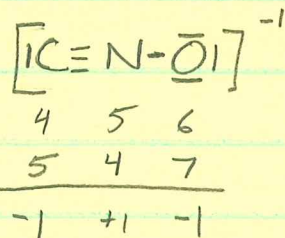 [|C≡N-O̲̅|]⁻¹
4 5 6
5 4 7
-1 +1 -1